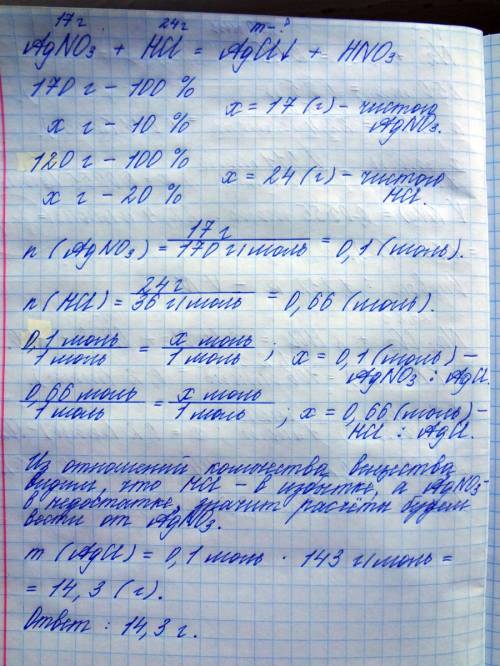 17 г 24 г m-?
AgNO₃ + HCl = AgCl↓ + HNO₃
170 г - 100 %
x г - 10 %
x = 17 (г) - чистого
AgNO₃.
120 г - 100 %
x г - 20 %
x = 24 (г) - чистого
HCl.
n (AgNO₃) = 17 г / 170 г/моль = 0,1 (моль).
n (HCl) = 24 г / 36 г/моль = 0,66 (моль).
0,1 моль / 1 моль = x моль / 1 моль ; x = 0,1 (моль) -
AgNO₃ : AgCl.
0,66 моль / 1 моль = x моль / 1 моль ; x = 0,66 (моль) -
HCl : AgCl.
Из отношений количества вещества
видим, что HCl - в избытке, а AgNO₃-
в недостатке, значит расчёты будем
вести от AgNO₃.
m (AgCl) = 0,1 моль · 143 г/моль =
= 14,3 (г).
Ответ : 14,3 г.